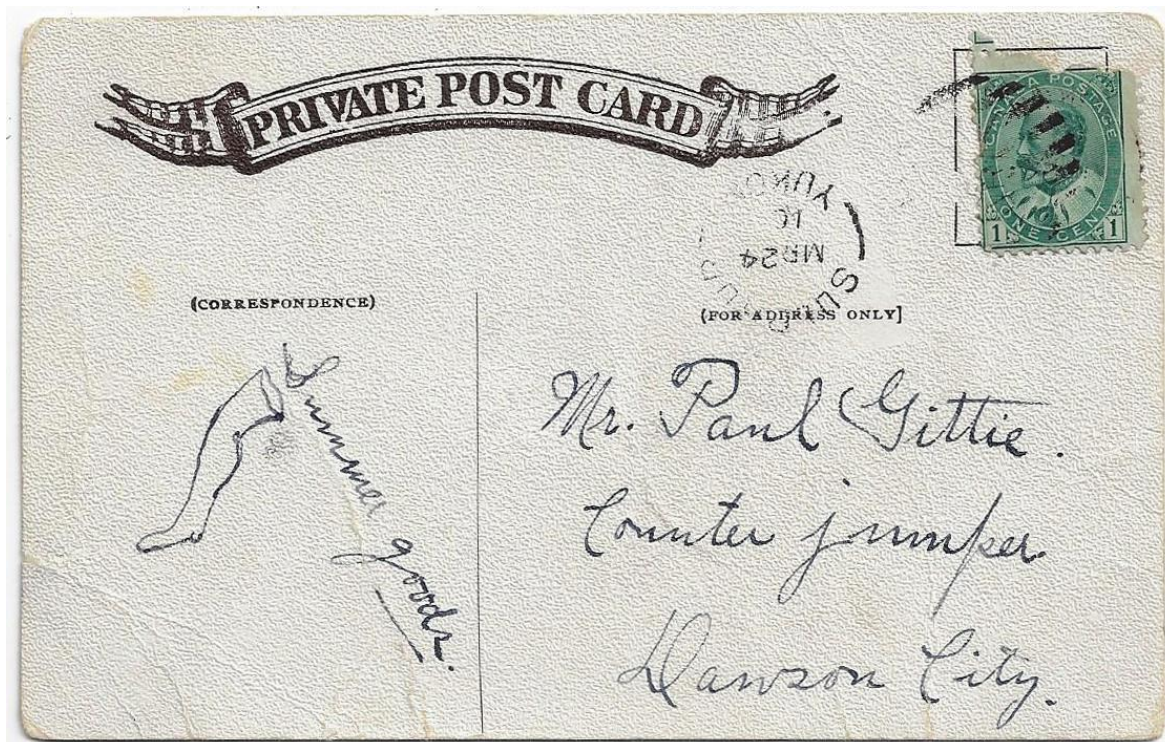 PRIVATE POST CARD
CANADA POSTAGE
ONE CENT
1 1
MR 24
YUKON
(CORRESPONDENCE)
(FOR ADDRESS ONLY]
Summer goods.
Mr. Paul Gittie.
Counter jumper
Dawson City.